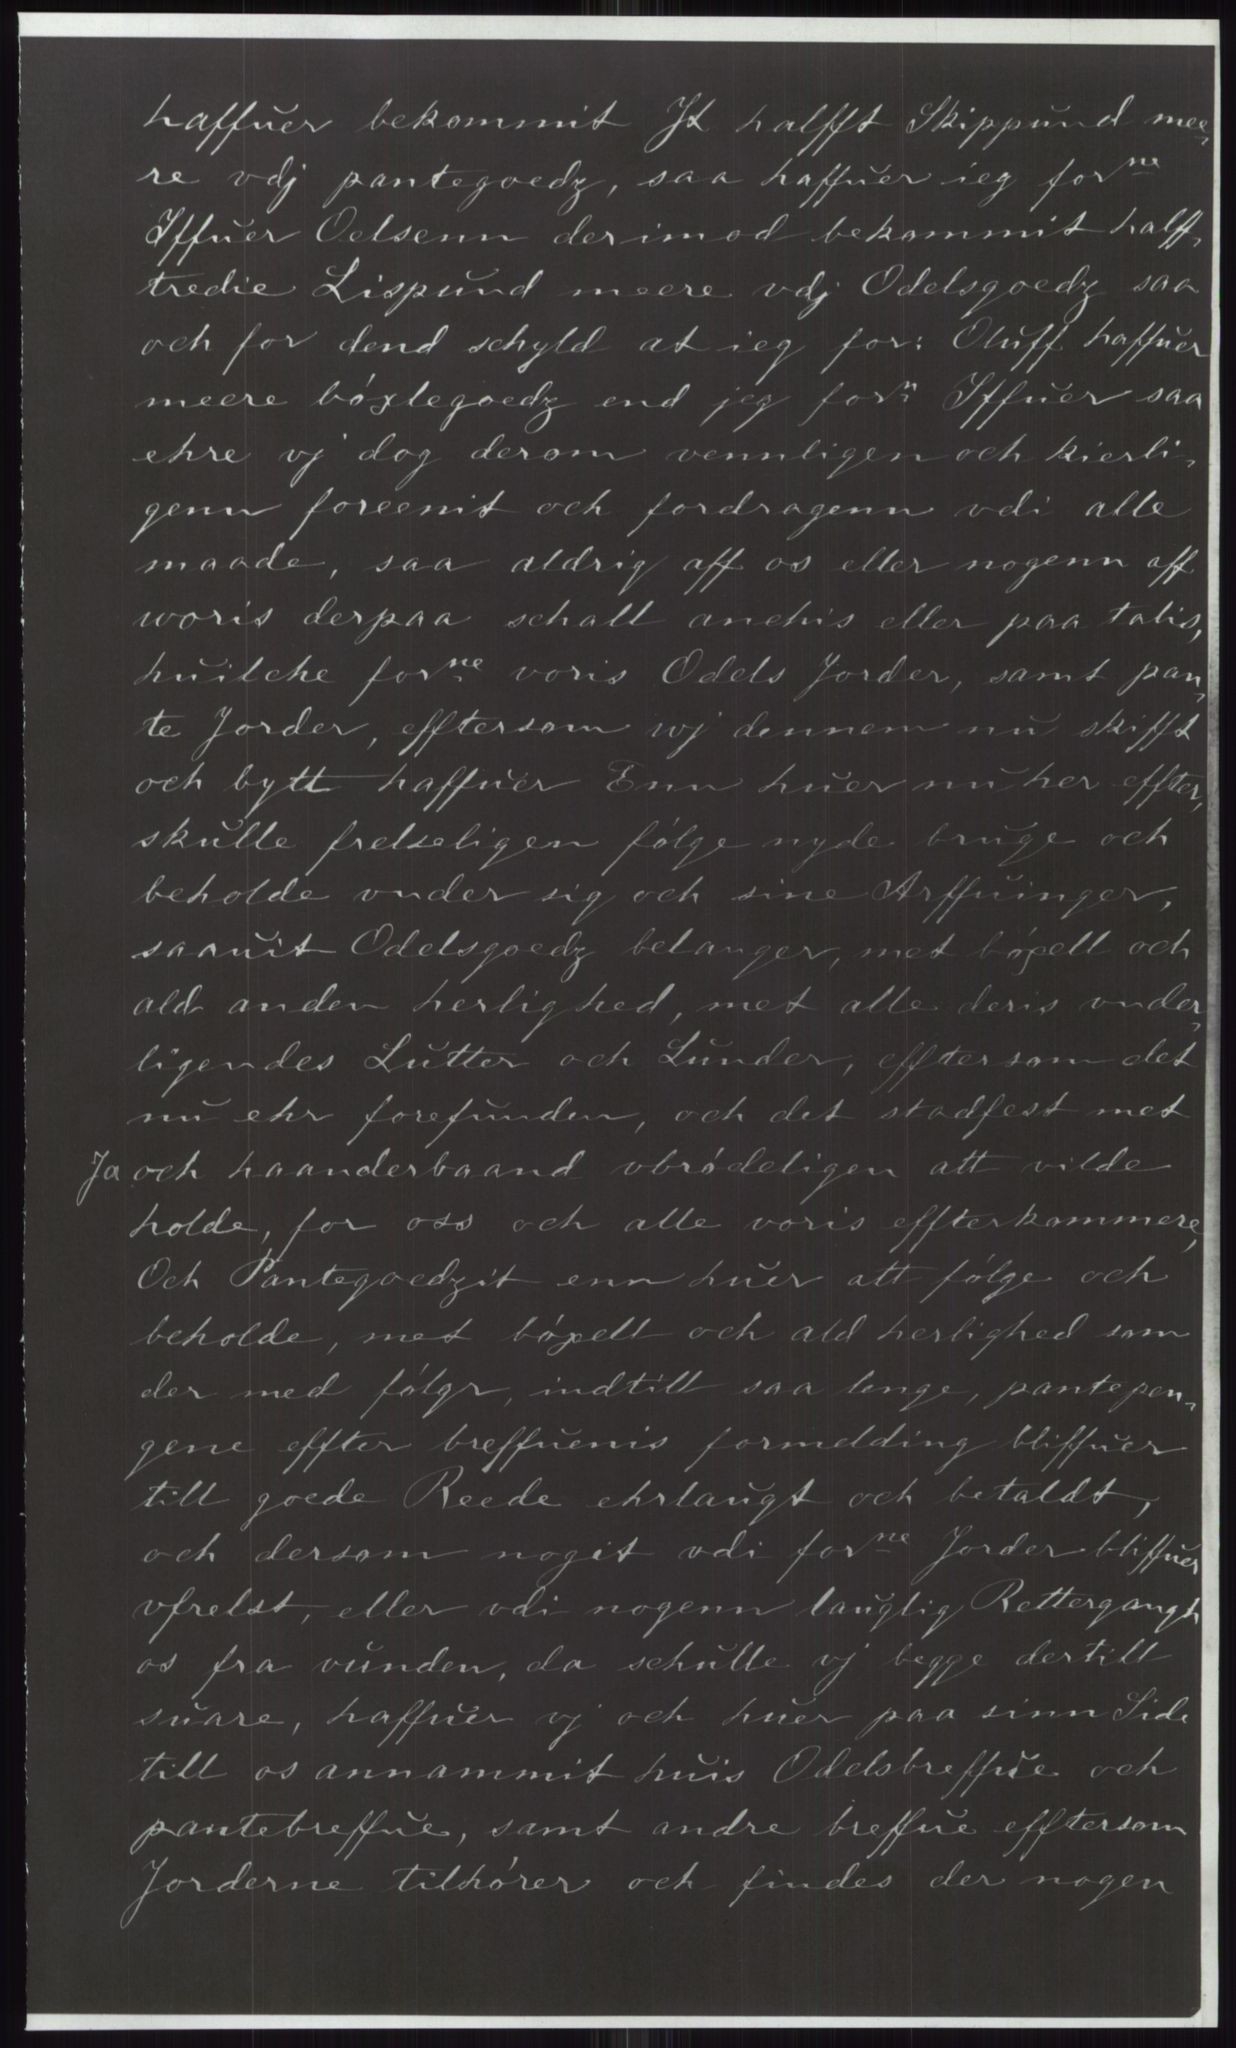 haffuer bekommit Jt halfft Skippund mee,
re vdj pantegoedz, saa haffuer ieg forne
Iffuer Oelsenn derimod bekommit halff,
tredie Lispund meere vdj Odelsgoedz saa
och for dend schyld at ieg for: Oluff haffuer
meere bøxlegoedz end jeg forn Iffuer saa
ehre vj dog derom vennligen och kierli,
genn foreenit och fordragenn vdi alle
maade, saa aldrig aff os eller nogenn aff
woris derpaa schall anchis eller paa talis,
huilche forne voris Odels Jorder, samt pan,
te Jorder, efftersom wj dennem nu skifft
och bytt haffuer Enn huer nu her effter,
skulle frelseligen følge nyde bruge och
beholde vnder sig och sine Arffuinger,
saauit Odelsgoedz belanger, met bøxell och
ald anden herlighed, met alle deris vnder,
ligendes Lutter och Lunder, efftersom det
nu ehr forefunden, och det stadfest met
Ja och haanderbaand vbrødeligen att vilde
holde, for oss och alle voris effterkommere,
Och Pantegoedzit enn huer att følge och
beholde, met bøxell och ald herlighed som
der med følgr, indtill saa lenge, pantepen,
gene effter breffuenis formelding bliffuer
till goede Reede ehrlaugt och betaldt,
och dersom nogit vdi forne Jorder bliffuer
vfrelst, eller vdi nogenn lauglig Rettergangh
os fra vunden, da schulle vj begge dertill
suare, haffuer vj och huer paa sinn Side
till os annammit huis Odelsbreffue och
pantebreffue, samt andre breffue efftersom
Jorderne tilhører och findes der nogen